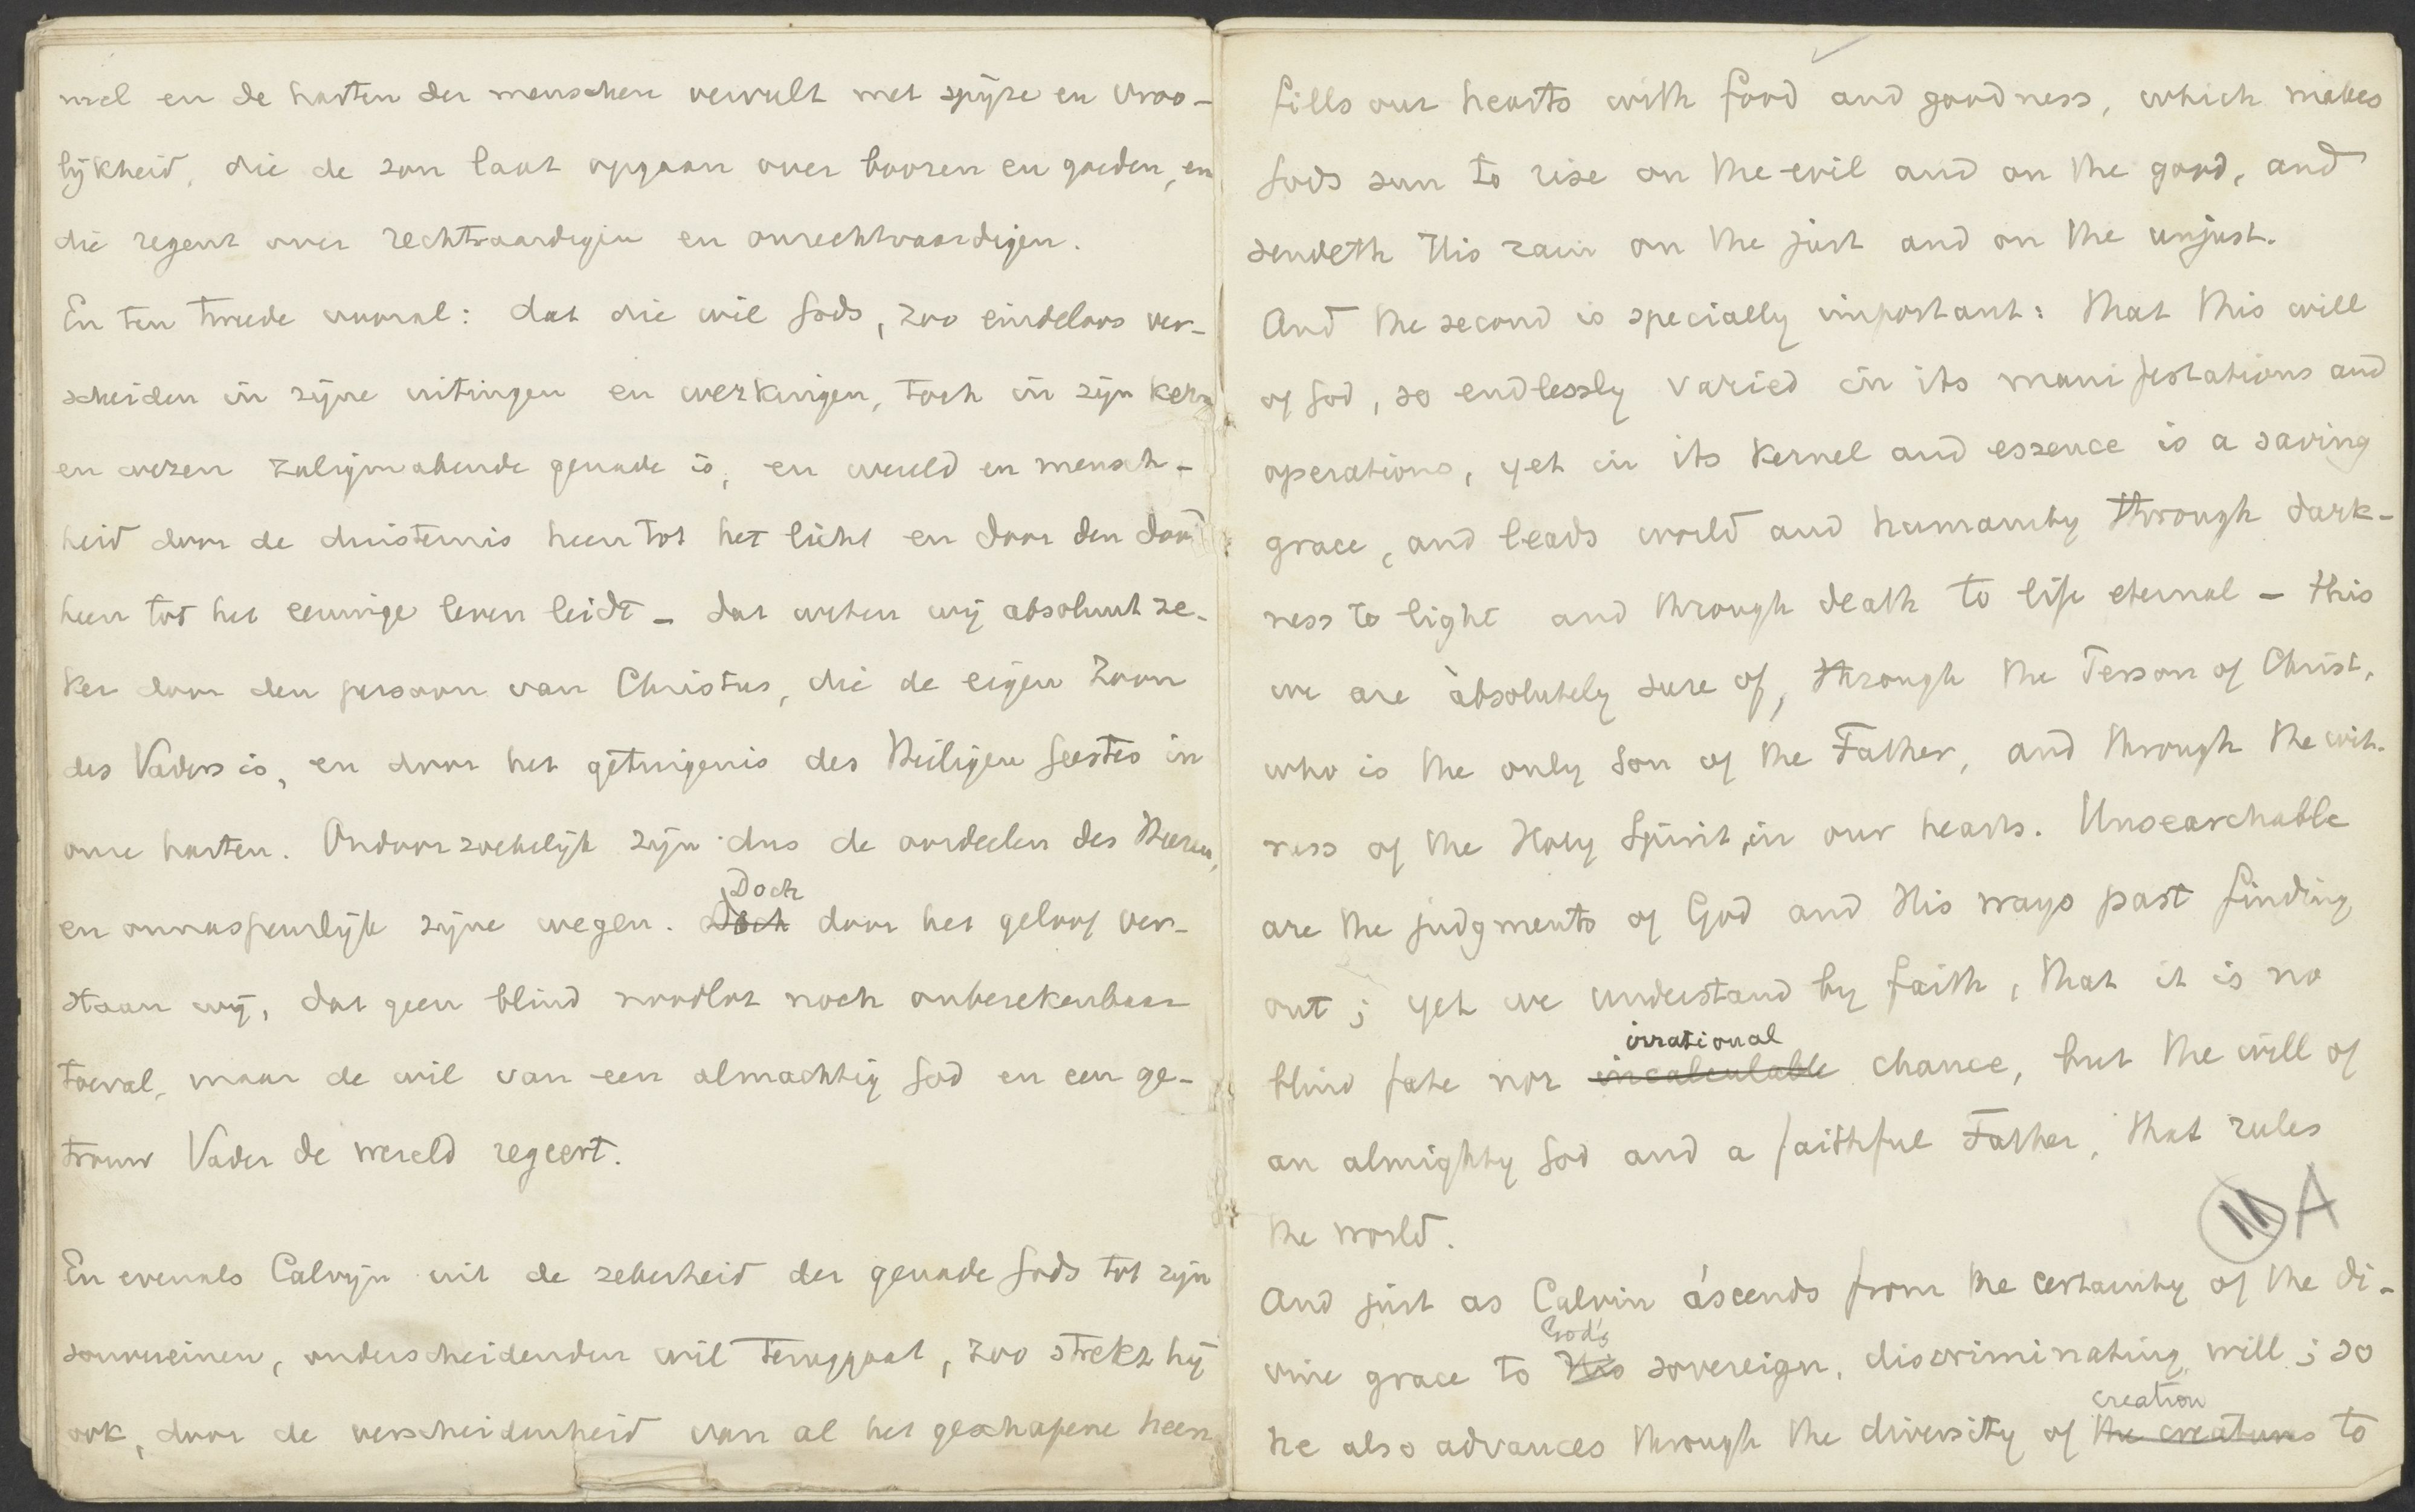 mel en de harten der menschen vervult met spijze en vroo-
lijkheid, die de zon laat opgaan over boozen en goeden, en
die regent over rechtvaardigen en onrechtvaardigen.
En ten tweede vooral: dat die wil Gods, zoo eindeloos ver-
scheiden in zijne uitingen en werkingen, toch in zijn kern
en wezen zaligmakende genade is, en wereld en mensch-
heid door de duisternis heen tot het licht en door den dood
heen tot het eeuwige leven leidt – dat weten wij absoluut ze-
ker door den persoon van Christus, die de eigen Zoon
des Vaders is, en door het getuigenis des Heiligen Geestes in
onze harten. Ondoorzoekelijk zijn dus de oordeelen des Heeren,
Doch
en onnaspeurlijk zijne wegen. Doch door het geloof ver-
staan wij, dat geen blind noodlot noch onberekenbaar
toeval, maar de wil van een almachtig God en een ge-
trouw Vader de wereld regeert.
En evenals Calvijn uit de zekerheid der genade Gods tot zijn
souvereinen, onderscheidenden wil teruggaat, zoo strekt hij
ook, door de verscheidenheid van al het geschapene heen
fills our hearts with food and goodness, which makes
Gods sun to rise on the evil and on the good, and
sendeth His rain on the just and on the unjust.
And the second is specially important: that this will
of God, so endlessly varied in its manifestations and
operations, yet in its kernel and essence is a saving
grace, and leads world and humanity through dark-
ness to light and through death to life eternal – this
we are absolutely sure of, through the Person of Christ,
who is the only Son of the Father, and through the wit-
ness of the Holy Spirit, in our hearts. Unsearchable
are the judgments of God and His ways past finding
out; yet we understand by faith, that it is no
irrational
blind fate nor incalculable chance, but the will of
an almighty God and a faithful Father, that rules
the world.
11 A
And just as Calvin ascends from the certainty of the di-
God's
vine grace to His sovereign, discriminating will; so
creation
he also advances through the diversity of the creatures to